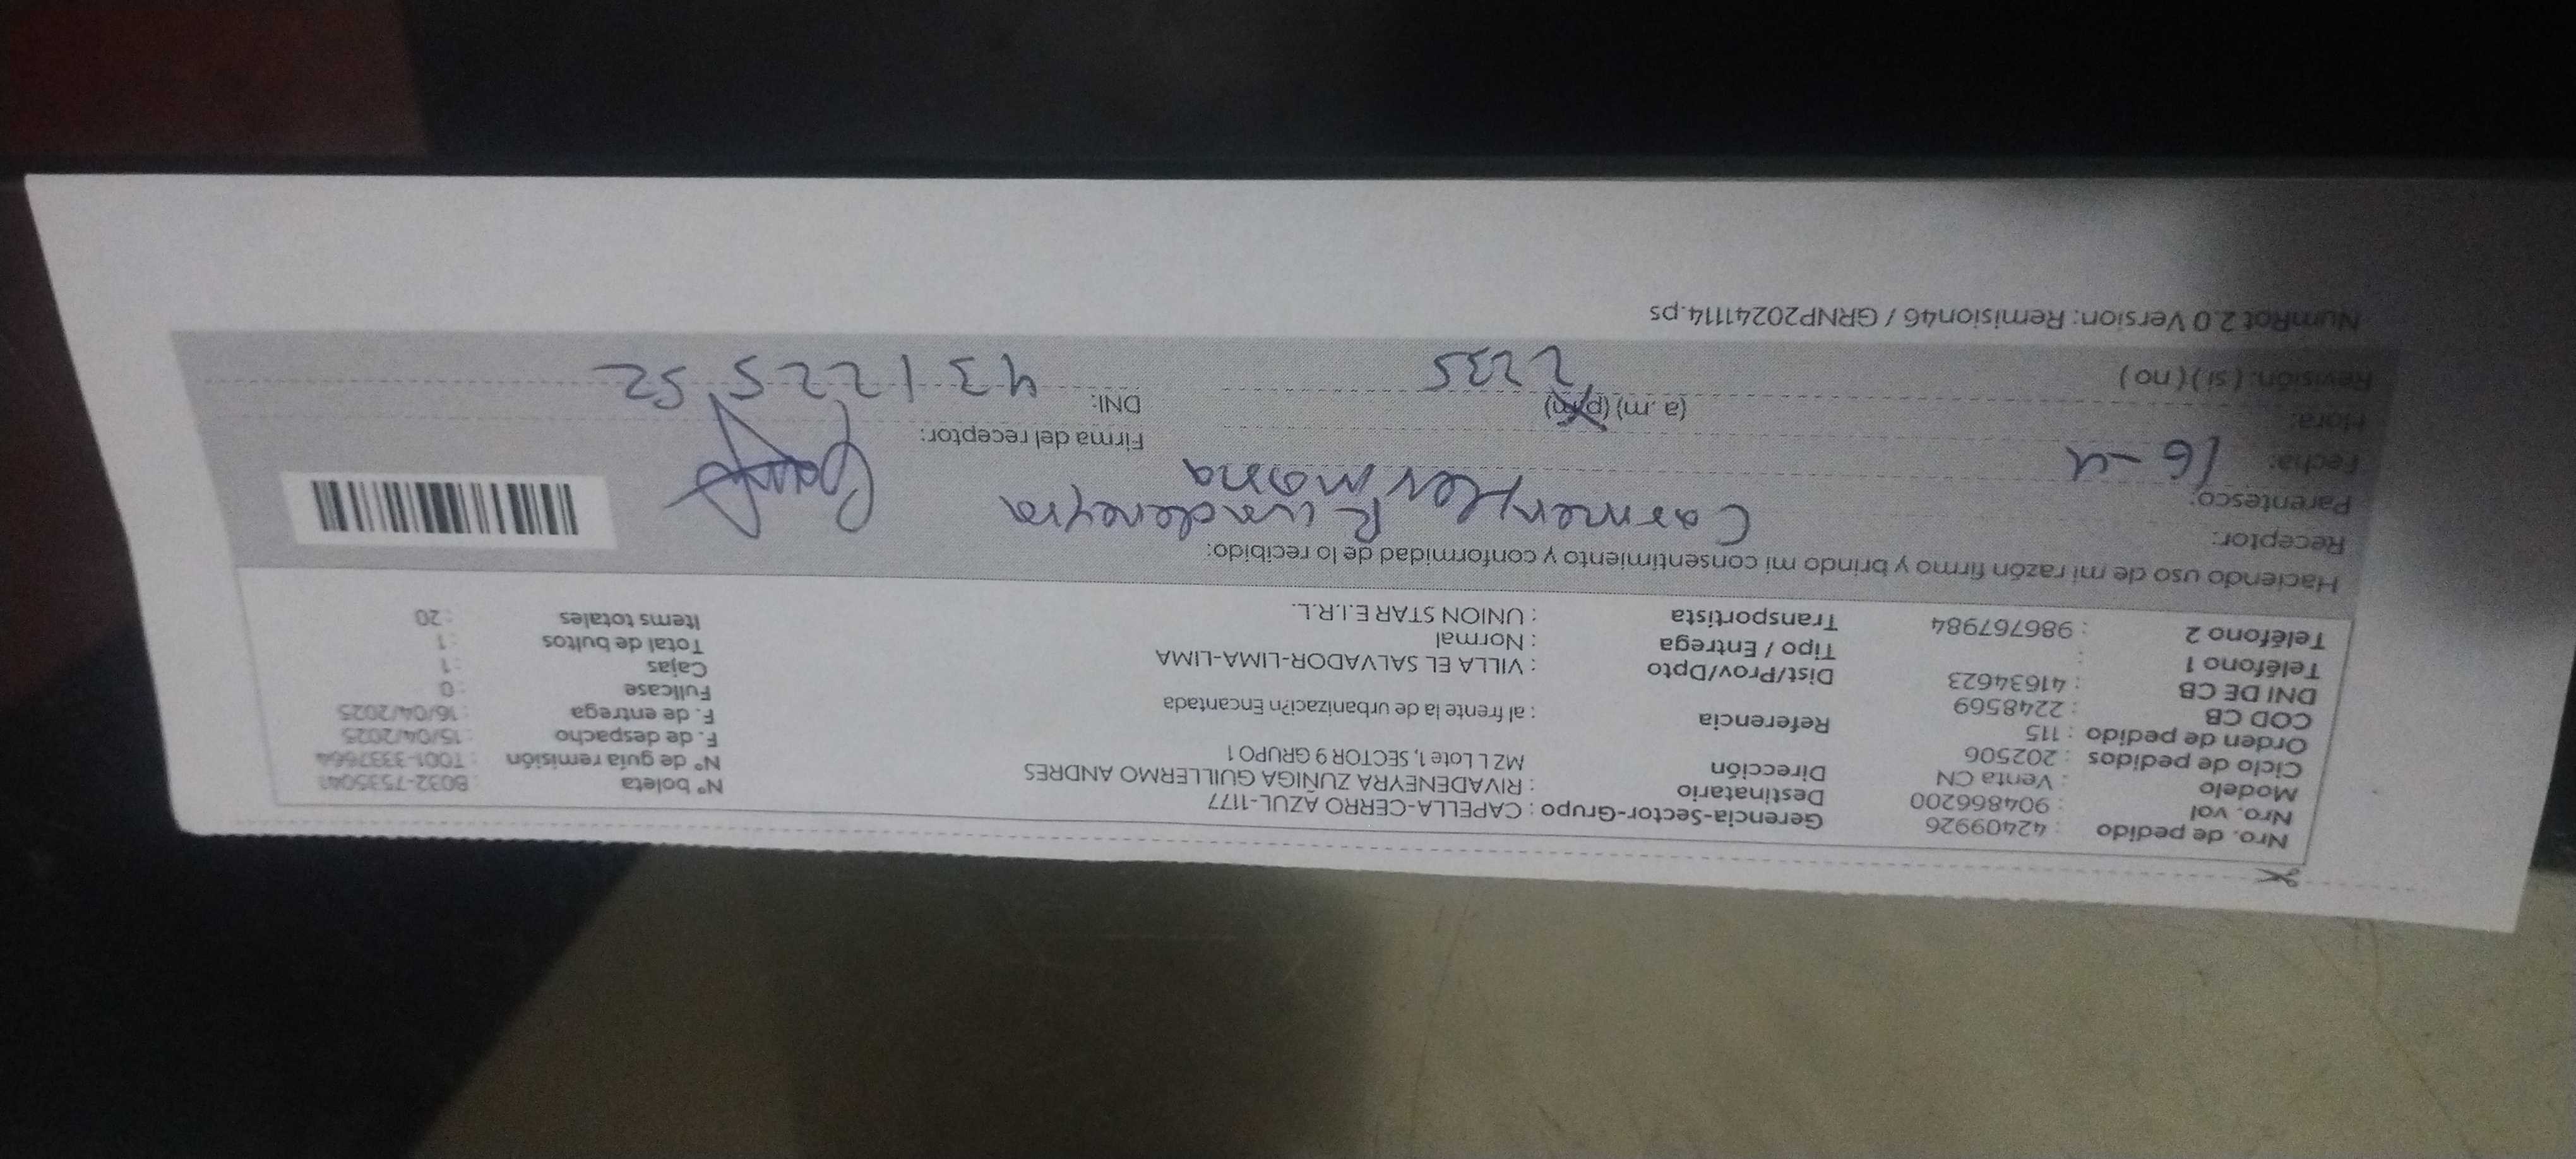 Nro. de pedido : 42409926 Gerencia-Sector-Grupo : CAPELLA-CERRO AZUL-1177 N° boleta : B032-7535041
Nro. vol : 904866200 Destinatario : RIVADENEYRA ZUÑIGA GUILLERMO ANDRES N° de guía remisión : T001-3337664
Modelo : Venta CN Dirección MZ L Lote 1, SECTOR 9 GRUPO 1 F. de despacho : 15/04/2025
Ciclo de pedidos : 202506 F. de entrega : 16/04/2025
Orden de pedido : 115 Referencia : al frente la de urbanizaci?n Encantada Fullcase : 0
COD CB : 2248569 Cajas : 1
DNI DE CB : 41634623 Dist/Prov/Dpto : VILLA EL SALVADOR-LIMA-LIMA Total de bultos : 1
Teléfono 1 : Tipo / Entrega : Normal Items totales : 20
Teléfono 2 : 986767984 Transportista : UNION STAR E.I.R.L.
Haciendo uso de mi razón firmo y brindo mi consentimiento y conformidad de lo recibido:
Receptor: Carmen Rivadeneyra
Parentesco: Hermana
Fecha: 16-4 Firma del receptor:
Hora: (a.m) (p.m) DNI: 43122552
Revisión: (si) (no) 2235
NumRot 2.0 Version: Remision46 / GRNP20241114.ps